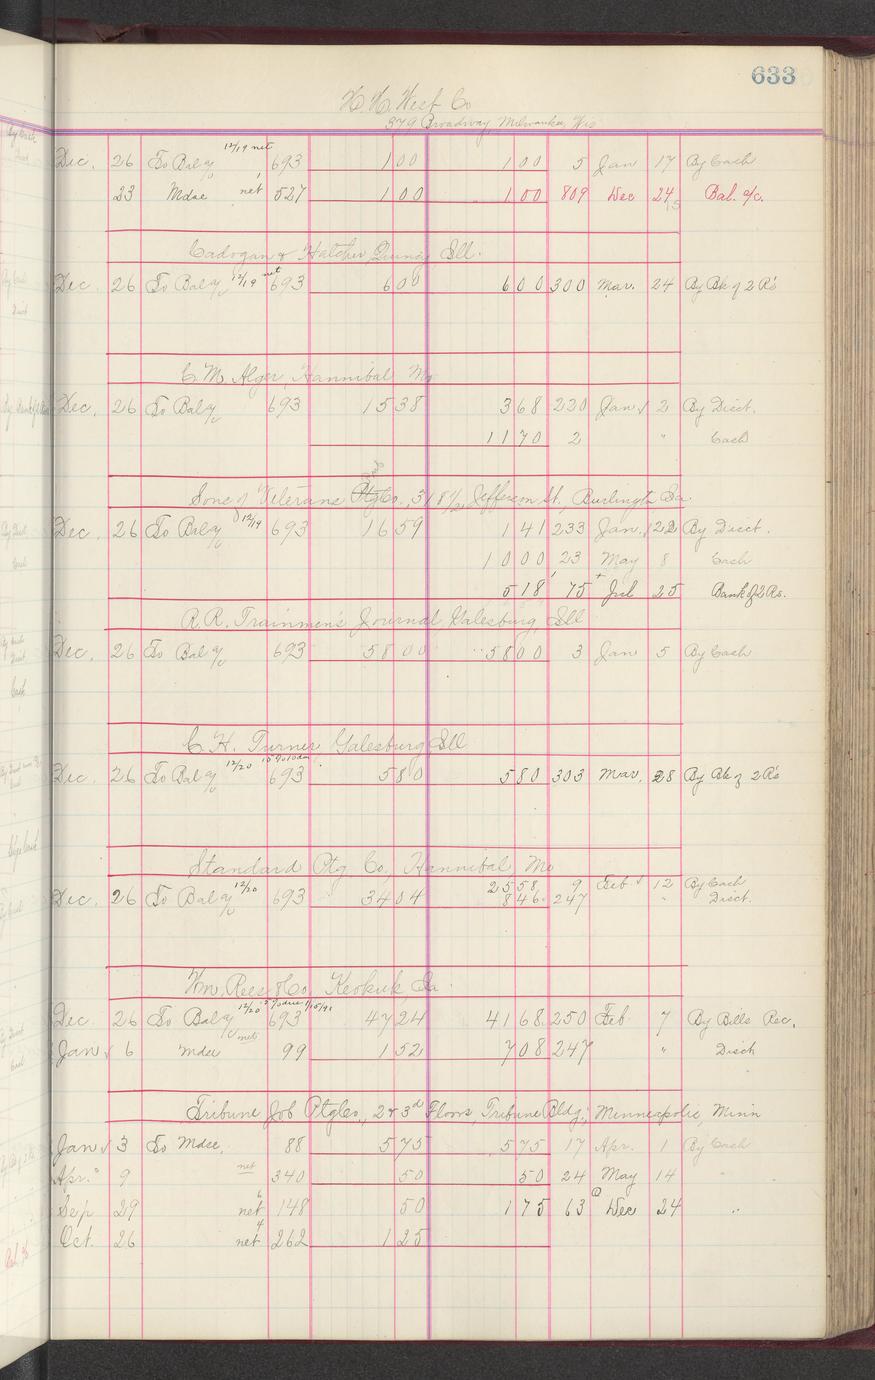 633
H. H. West Co
379 Broadway, Milwaukee, Wis
Dec. 26 To Bal a/c 12/19 net 693 1 00 1 00 5 Jan 17 By Cash
23 Mdse net 527 1 00 1 00 809 Dec 24 Bal. a/c.
Cadogan & Hatcher Quincy Ill.
Dec. 26 To Bal a/c 12/19 net 693 6 00 6 00 300 Mar. 24 By Bk of 2 Rs
C. M. Alger, Hannibal Mo
Dec. 26 To Bal a/c 693 15 38 3 68 230 Jan 2 By Disct.
11 70 2 " Cash
Sons of Veterans Ptg Co., 318 1/2 Jefferson St., Burlington Ia.
Dec. 26 To Bal a/c 12/19 693 16 59 1 41 233 Jan. 22 By Disct.
10 00 23 May 8 Cash
5 18 75 Jul 25 Bank of 2 Rs.
R.R. Trainmen's Journal, Galesburg, Ill
Dec. 26 To Bal a/c 693 58 00 58 00 3 Jan 5 By Cash
C. H. Turner, Galesburg, Ill
Dec. 26 To Bal a/c 12/20 693 5 80 5 80 303 Mar. 28 By Bk of 2 Rs
Standard Ptg Co., Hannibal, Mo
25 58 9 Feb 12 By Cash
Dec. 26 To Bal a/c 12/20 693 34 04 8 46 247 " Disct.
Wm. Rees & Co. Keokuk, Ia.
Dec 26 To Bal a/c 12/20 693 47 24 41 68 250 Feb 7 By Bills Rec.
Jan 6 Mdse net 99 1 52 7 08 247 " Disct
Tribune Job Ptg Co., 2 & 3d Floors, Tribune Bldg., Minneapolis, Minn
Jan 3 To Mdse, 88 5 75 5 75 17 Apr. 1 By Cash
Apr. 9 net 340 50 50 24 May 14 "
Sep 29 6 net 148 50 1 75 63 Dec 24 "
Oct. 26 4 net 262 1 25